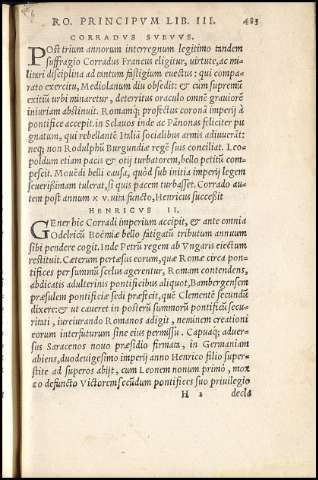 RO. PRINCIPVM LIB. III. 483
CORRADVS SVEVVS.
POst trium annorum interregnum legitimo tandem
suffragio Corradus Francus eligitur, uirtute, ac mi-
litari disciplina ad tantum fastigium euectus: qui compa-
rato exercitu, Mediolanum diu obsedit: & cum supremũ
exitũ urbi minaretur, deterritus oraculo omnẽ grauiorẽ
iniuriam abstinuit. Romamq; profectus coronã imperij à
pontifice accepit. in Sclauos inde ac Pãnonas feliciter pu
gnatum, qui rebellantẽ Italiã socialibus armis adiuuerãt:
neq; non Rodulphũ Burgundiæ regẽ sus conciliat. Leo-
poldum etiam pacis & otij turbatorem, bello petitũ com-
pescuit. Mouẽdi belli causa, quòd sub initia imperij legem
seuerißimam tulerat, si quis pacem turbasset. Corrado au-
tem post annum XV. uita functo, Henricus succeßit
HENRICVS II.
GEner hic Corradi imperium accipit, & ante omnia
Odelricũ Boëmiæ bello fatigatũ tributum annuum
sibi pendere cogit. Inde Petrũ regem ab Vngaris eiectum
restituit. Cæterum pertæsus eorum, quæ Romæ circa pon-
tifices per summũ scelus agerentur, Romam contendens,
abdicatis adulterinis pontificibus aliquot, Bambergensem
præsulem pontificiæ sedi præfecit, quẽ Clementẽ secundũ
dixere: & ut caueret in posterũ summorũ pontificũ secu-
ritati, iureiurando Romanos adigit, neminem creationi
eorum interfuturum sine eius permissu. Capuaq; aduer-
sus Saracenos nouo præsidio firmata, in Germaniam
abiens, duodeuigesimo imperij anno Henrico filio super-
stite ad superos abijt, cum Leonem nonum primò, mox
eo defuncto Victorem secũdum pontifices suo priuilegio
H 2 decla